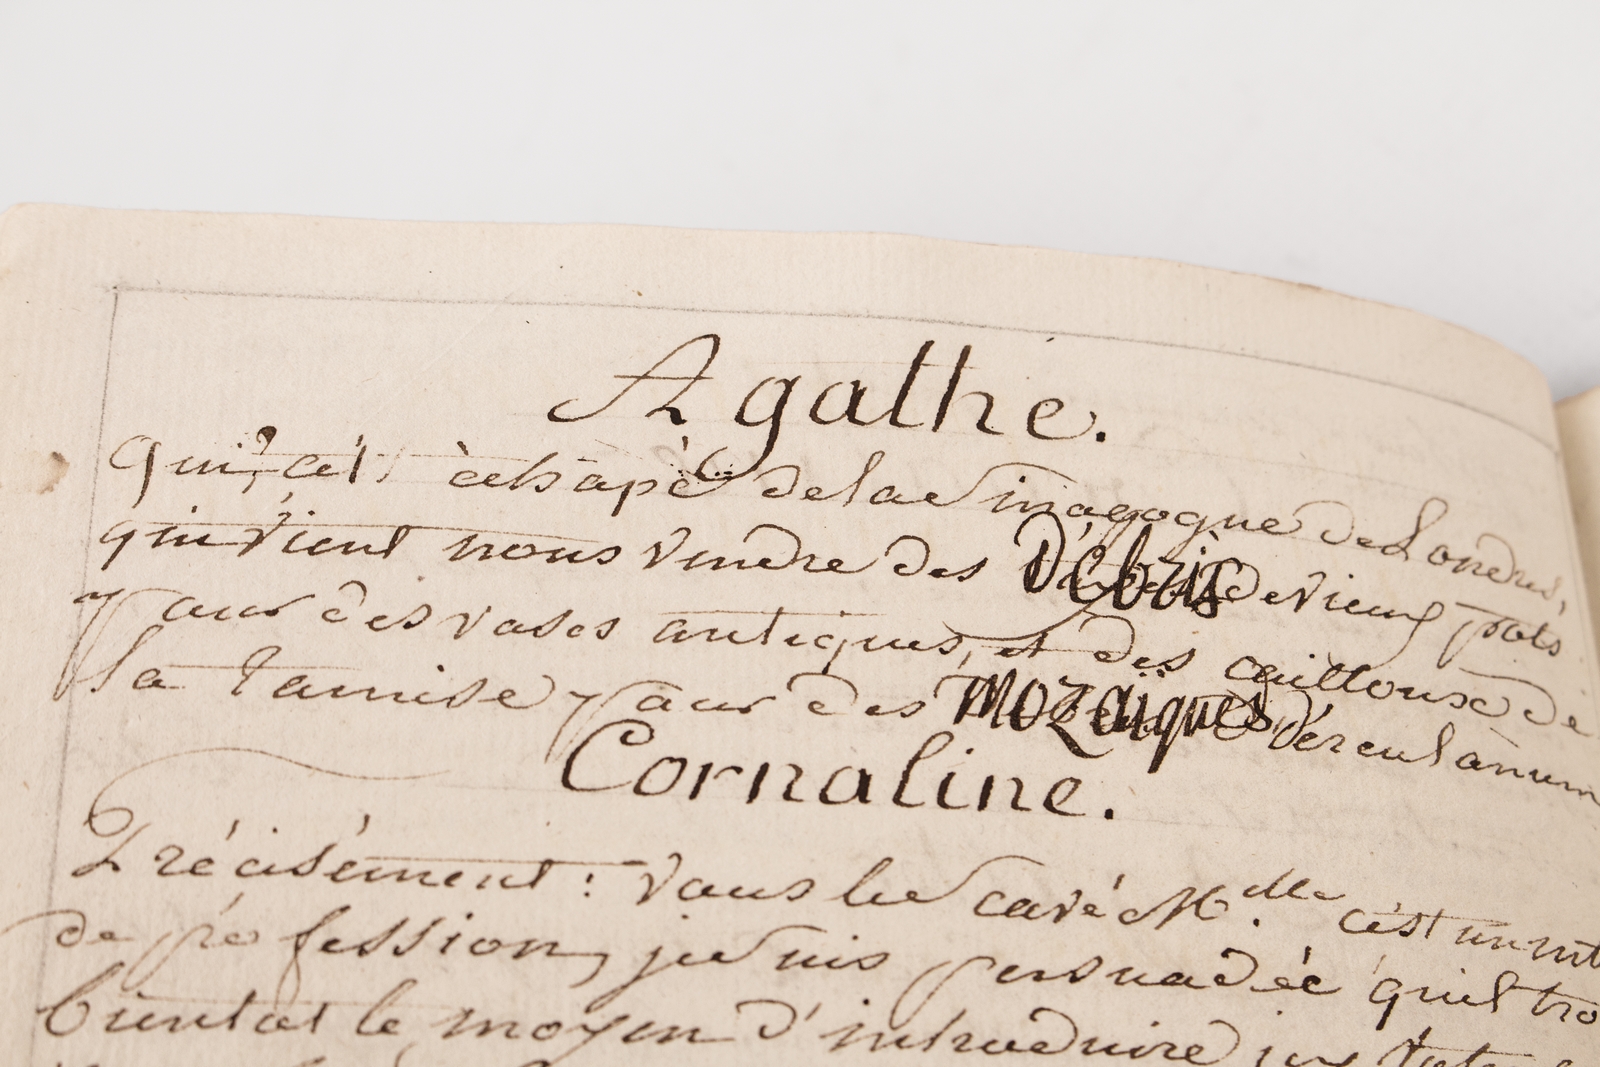 Agathe.
qui s'est échapé de la Sinagogue de Londres,
qui vient nous vendre des Débris de vieux pots
pour des vases antiques, et des cailloux de
la Tamise pour des mozaïques d'érculanum
Cornaline.
Précisément: vous le Savé Mlle. c'est un int
de proféssion, je suis persuadée qu'il tro
bientot le moyen d'introduire